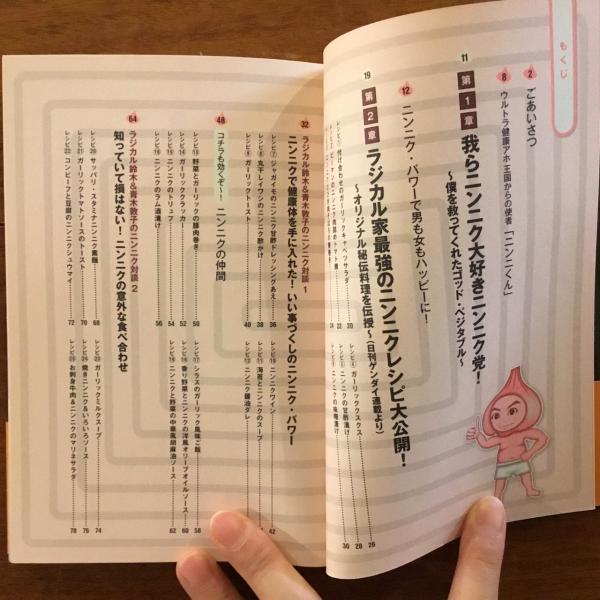 もくじ
2 ごあいさつ
8 ウルトラ健康アホ王国からの使者「ニンニくん」
11 第1章 我らニンニク大好きニンニク党！
～僕を救ってくれたゴッド・ベジタブル～
12 ニンニク・パワーで男も女もハッピーに！
19 第2章 ラジカル家最強のニンニクレシピ大公開！
～オリジナル秘伝料理を伝授～（日刊ゲンダイ連載より）
付け合わせのガーリックキャベツサラダ 20
22
24
レシピ④ ガーリッククスクス 26
ニンニクの甘酢漬け 28
ニンニクの味噌漬け 30
32 ラジカル鈴木＆青木敦子のニンニク対談 1
ニンニクで健康体を手に入れた！いい事づくしのニンニク・パワー
レシピ⑦ ジャガイモのニンニク甘酢ドレッシングあえ 36
レシピ⑧ 丸干しイワシのニンニク酢かけ 38
レシピ⑨ ガーリックトースト 40
レシピ⑩ ニンニクワイン 42
レシピ⑪ 海苔とニンニクのスープ
レシピ⑫ ニンニク醤油ダレ
48 コチラも効くぞ～！ニンニクの仲間
レシピ⑬ 野菜とガーリックの豚肉巻き 50
レシピ⑭ ガーリッククラッカ 52
レシピ⑮ ニンニクのトリュフ 54
レシピ⑯ ニンニクのラム酒漬け 56
レシピ⑰ シラスのガーリック風味ご飯 58
レシピ⑱ 香り野菜とニンニクの洋風オリーブオイルソース 60
レシピ⑲ ニンニクと野菜の中華風胡麻油ソース 62
64 ラジカル鈴木＆青木敦子のニンニク対談 2
知っていて損はない！ニンニクの意外な食べ合わせ
レシピ⑳ サッパリ・スタミナニンニク素麺 68
レシピ㉑ ガーリックトマトソースのトースト 70
レシピ㉒ コンビーフと豆腐のニンニクシュウマイ 72
レシピ㉓ ガーリックミルクスープ 74
レシピ㉔ 焼きニンニク＆いろいろソース 76
レシピ㉕ お刺身牛肉＆ニンニクのマリネサラダ 78